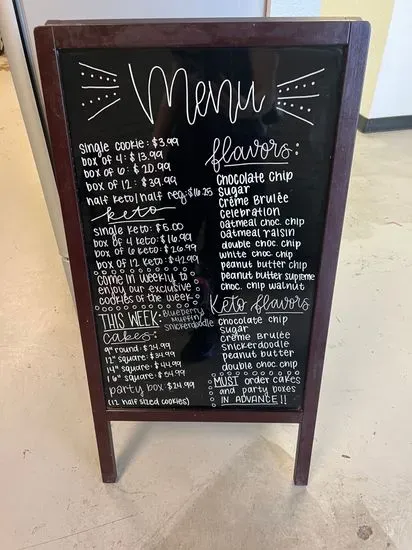 Menu
single cookie: $3.99
box of 4: $13.99
box of 6: $20.99
box of 12: $39.99
half keto/half reg: $16.25
keto
single keto: $5.00
box of 4 keto: $16.99
box of 6 keto: $26.99
box of 12 keto: $42.99
come in weekly to
enjoy our exclusive
cookies of the week
THIS WEEK: Blueberry
muffin
snickerdoodle
cakes:
9" round: $24.99
12" square: $34.99
14" square: $44.99
16" square: $64.99
party box $24.99
(12 half sized cookies)
flavors:
chocolate chip
sugar
crème brulée
celebration
oatmeal choc. chip
oatmeal raisin
double choc. chip
white choc. chip
peanut butter chip
peanut butter supreme
choc. chip walnut
Keto flavors
chocolate chip
sugar
crème brulée
snickerdoodle
peanut butter
double choc. chip
MUST order cakes
and party boxes
IN ADVANCE!!